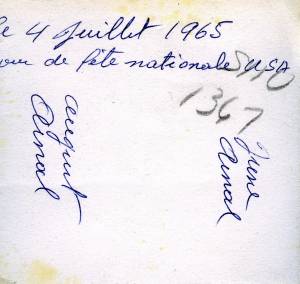 le 4 Juillet 1965
jour de fête nationale USA
1367
August
Arnal
June
Arnal